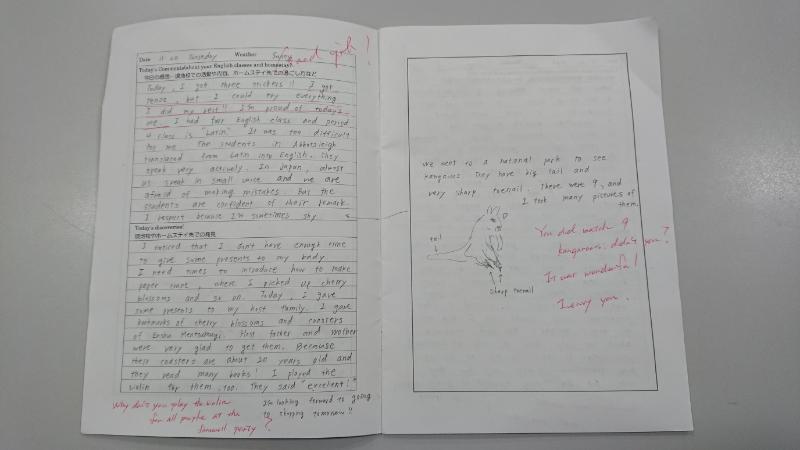 Date 11 on Tuesday Weather Sunny
Good girl!
Today's Comments(about your English classes and homestay)
Today, I got three stickers!! I got
tense, but I could try everything
I did my best!! I'm proud of today's
me. I had four English class and period
4 class is "Latin." It was too difficult
for me. The students in Abbotsleigh
translated from Latin into English. They
speak very actively. In Japan, almost
us speak in small voice and we are
afraid of making mistakes. But the
students are confident of their remark.
I respect because I'm sometimes shy.
Today's discoveries!
現地校やホームステイ先での発見
I noticed that I don't have enough time
to give some presents to my buddy.
I need times to introduce how to make
paper crane, where I picked up cherry
blossoms and so on. Today, I gave
some presents to my host family. I gave
bookmarks of cherry blossoms and coasters
of Enshu Mentsumugi. Host father and mother
were very glad to get them. Because
their coasters are about 20 years old and
they read many books! I played the
violin for them, too. They said "excellent!"
I'm looking forward to going
to shopping tomorrow!!
Why don't you play the violin
for all people at the
farewell party?
We went to a national park to see
kangaroos. They have big tail and
very sharp toenail. There were 9, and
I took many pictures of
them.
tail
sharp toenail
You did watch 9
kangaroos, didn't you?
It was wonderful!
I envy you.